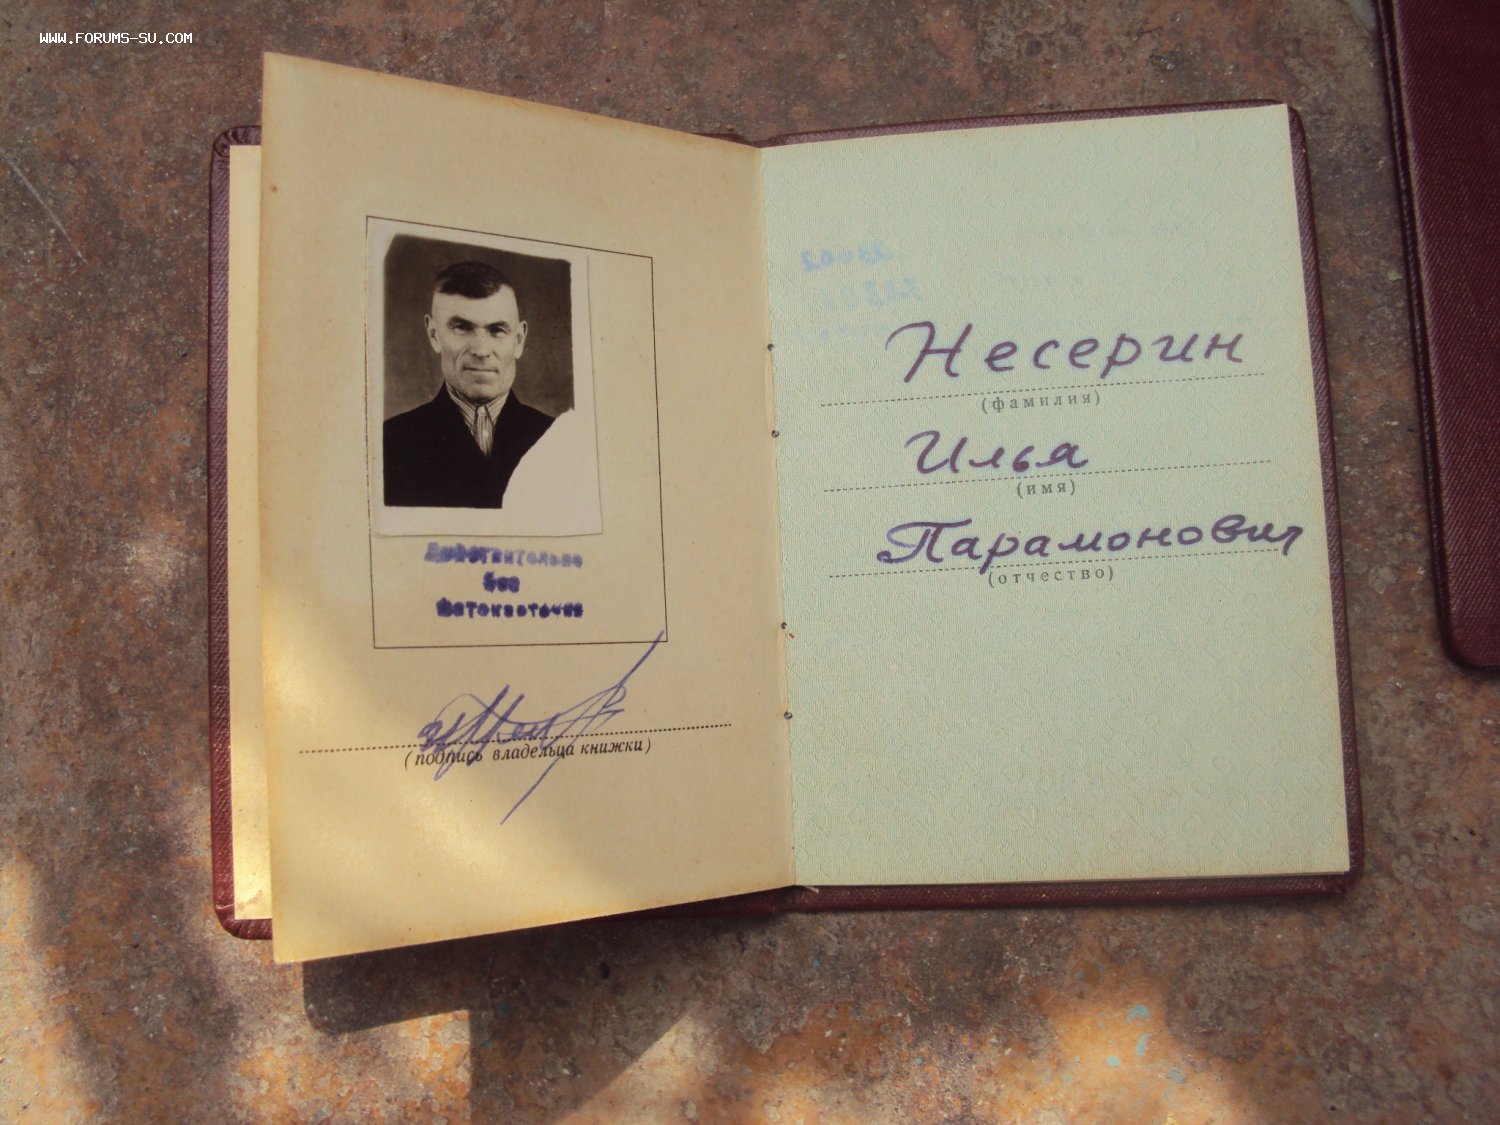 www.forums-su.com
Действительно
без
фотокарточки
(подпись владельца книжки)
Несерин
(фамилия)
Илья
(имя)
Парамонович
(отчество)